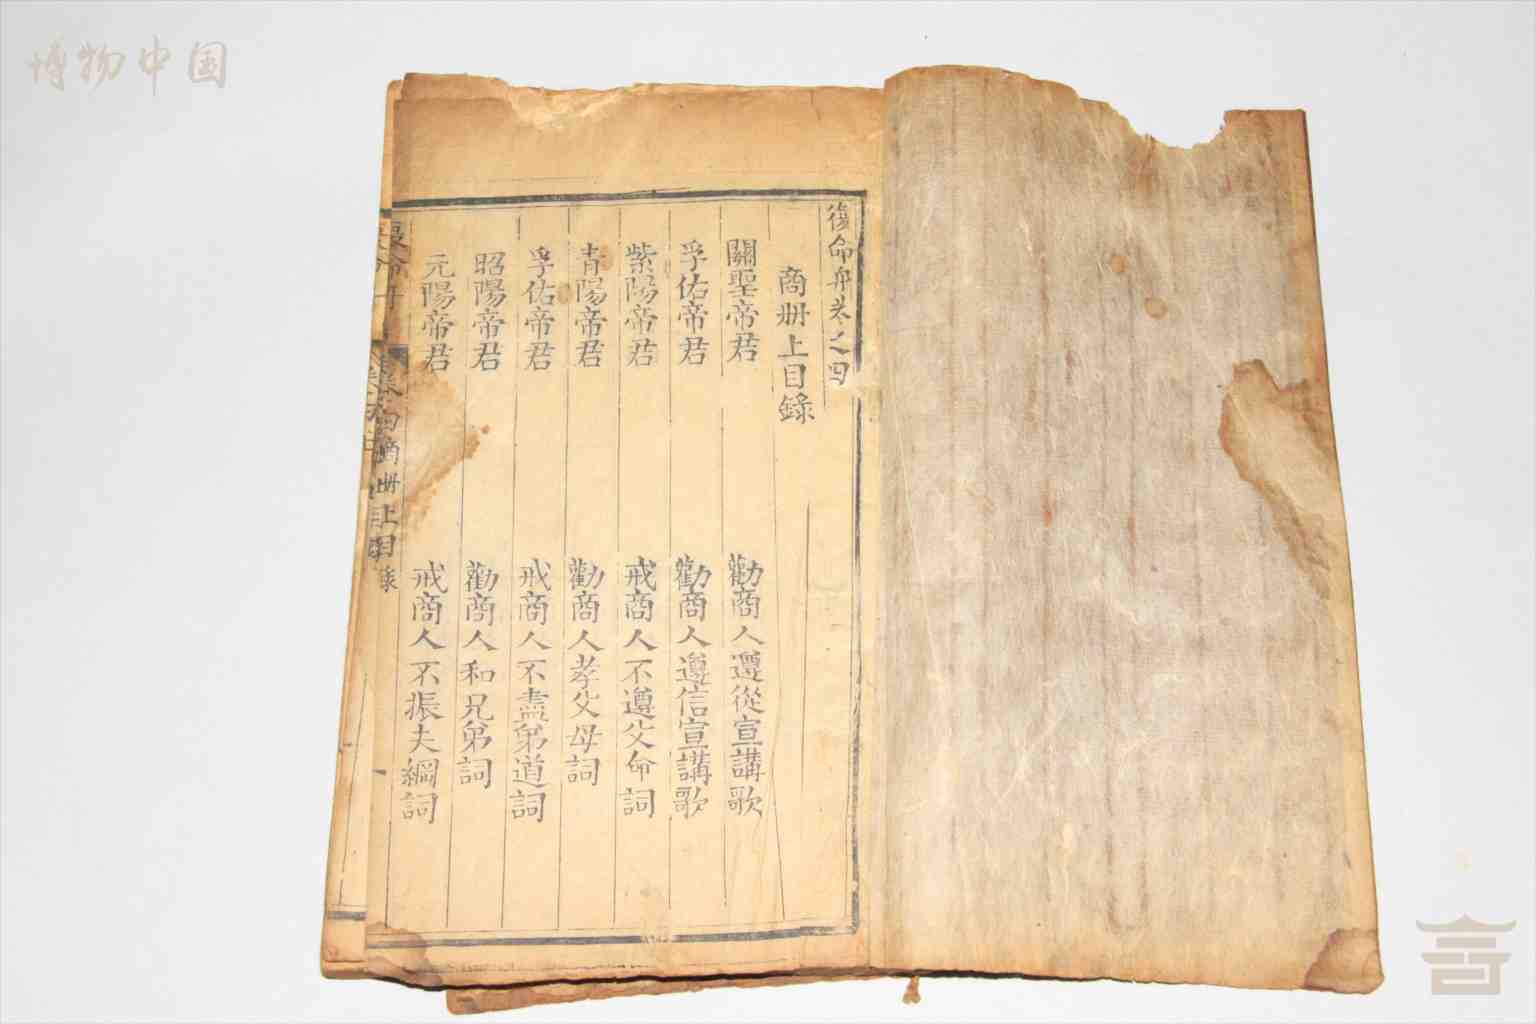 博物中国
復命舟卷之四
商册上目錄
關聖帝君 勸商人遵從宣講歌
孚佑帝君 勸商人遵信宣講歌
紫陽帝君 戒商人不遵父命詞
青陽帝君 勸商人孝父母詞
孚佑帝君 戒商人不盡弟道詞
昭陽帝君 勸商人和兄弟詞
元陽帝君 戒商人不振夫綱詞
卷四商册上目錄